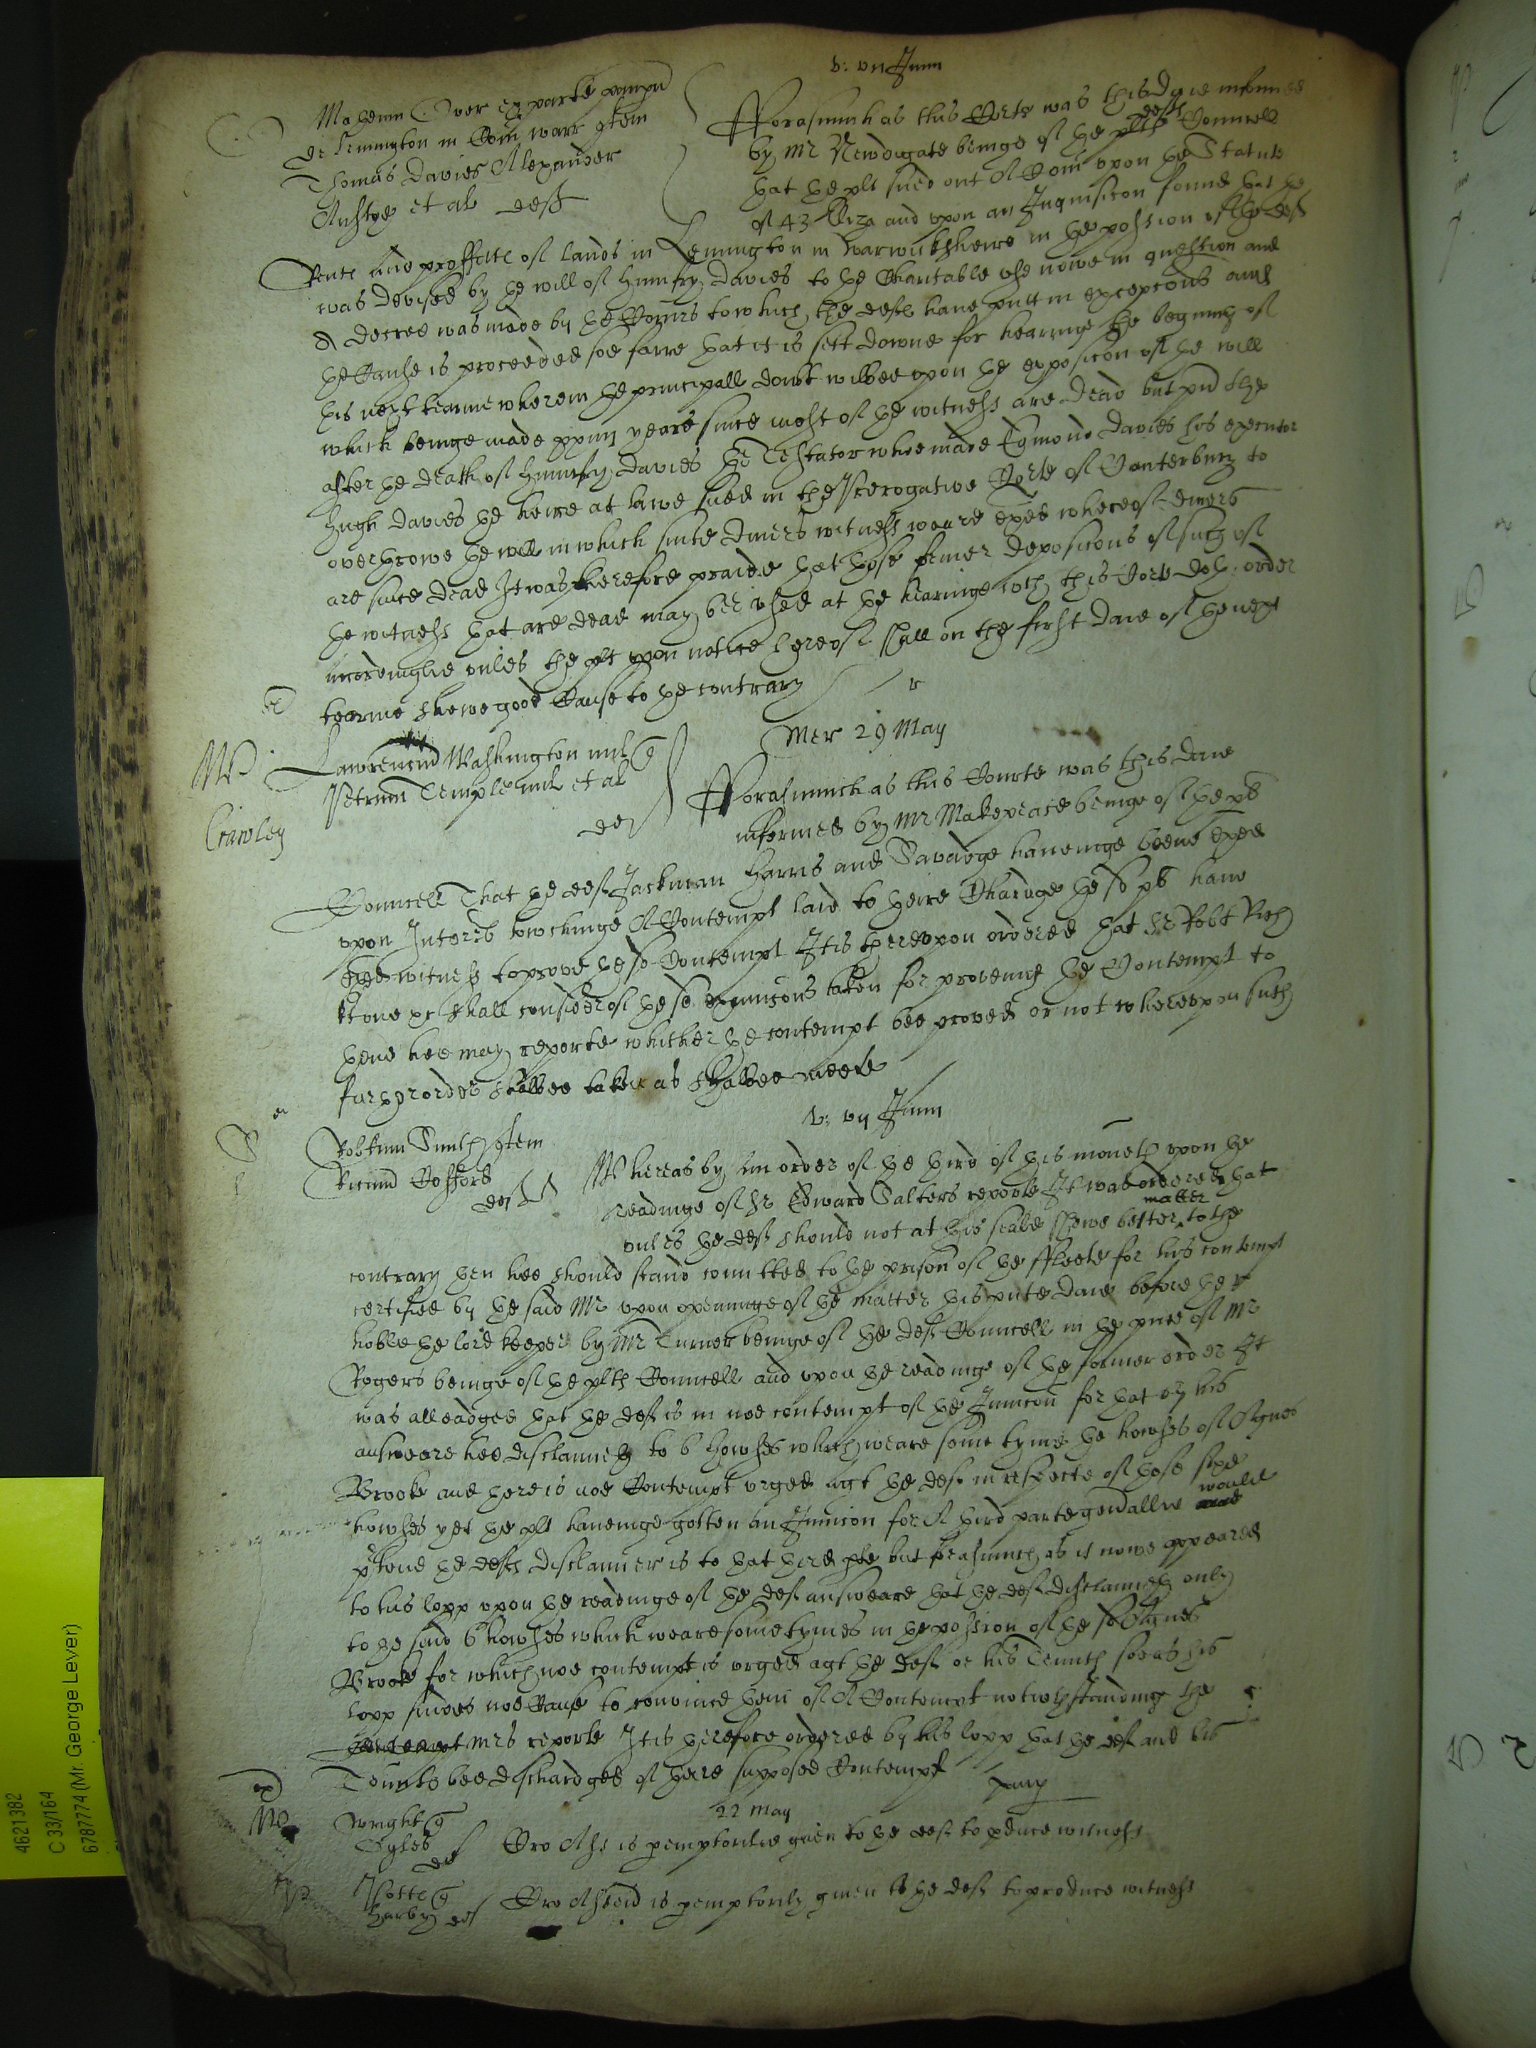 v: vij Junii
Mathewm Over ex parte
de Lemington in Com warr gten
Thomas Davies Alexander
et al deft
Forasmuch as this Corte was this daie informed
by Mr Newdigate beinge of the defts Councell
that the plt sued out A Com upon the Statute
of 43 Eliza and upon an Inquisicon found that the
Rente and proffitte of lands in Lemington in warwicksheire in the possion of the deft
was devised by the will of Humfry Davies to the Charitable use nowe in question and
A decree was made by the Comrs to which the deft have putt in excepcons and
the Cause is proceeded soe farre that it is sett downe for hearinge the beginning of
this next tearme wherein the principall doubt wilbee upon the exposicon of the will
which beinge made yeares since most of the witness are dead but the
after the death of Humfry Davies the Testator whoe made Edmond Davies his executor
Hugh Davies the heire at lawe sued in the Prerogative Corte of Canterbury to
overthrowe the will in which suite divers witness weare exed whereof divers
are since dead It was therefore praied that those former deposicons of such of
the witness that are dead may bee used at the hearinge wch this Corte doth order
accordinglie unles the plt upon notice hereof shall on the first daie of the next
tearme shewe good Cause to the contrary
r
Mer 29 May
W
Crawley
Lawrencm Washington mil q
Petrum Temple mil et al
def
Forasmuch as this Courte was this daie
informed by Mr Makepeace beinge of the pts
Councell That the deft Jackman Harris and Savadge haveinge beene exed
upon Interr towchinge A Contempt laid to theire Chardge the sd pts have
exed witness to prove the sd Contempt It is thereupon ordered that Sr Robt Rich
kt one &c shall consider of the sd examicons taken for proveing the Contempt to
thend hee may reporte whither the contempt bee proved or not whereupon such
further order shalbee taken as shalbee meete
v: vij Junii
Robtum Smith gten
Ricum Cofford
def
Whereas by an order of the third of this moneth upon the
readinge of Sr Edward Salters reporte It was ordered that
unles the deft should not at his seale shewe better matter to the
contrary then hee should stand comitted to the prison of the Fleete for his contempt
certified by the said Mr upon openinge of the matter this pnte daie before the r
hoble the lord keeper by Mr Turner beinge of the deft Councell in the pnce of Mr
Rogers beinge of the plts Councell and upon the readinge of the former order It
was alleadged that the deft is in noe contempt of the Iniuncon for that by his
answeare hee disclaimeth to 6 howses which weare some tyme the howses of Agnes
Brooke and there is noe Contempt urged agt the deft in respecte of those sixe
howses yet the plt haveinge gotten an Iniuncon for A third parte generallie would
ptend the defts disclaimer is to that third pte but forasmuch as it nowe appeared
to his lopp upon the readinge of the deft answeare that the deft disclaimeth only
to the said 6 howses which weare sometymes in the possion of the sd Agnes
Brooke for which noe contempt is urged agt the deft or his Tennts soe as his
lopp findes noe Cause to convince them of A Contempt notwthstandinge the
Mrs reporte It is therefore ordered by his lopp that the deft and his
Tennts bee dischardged of theire supposed Contempt
22 May
Wright q
Eyles
def
Pro Ass is pemptorilie given to the deft to pduce witness
Potte q
Harby def
Pro Ass is pemptorily given to the deft to produce witness
4621382
C 33/164
6787774 (Mr. George Lever)